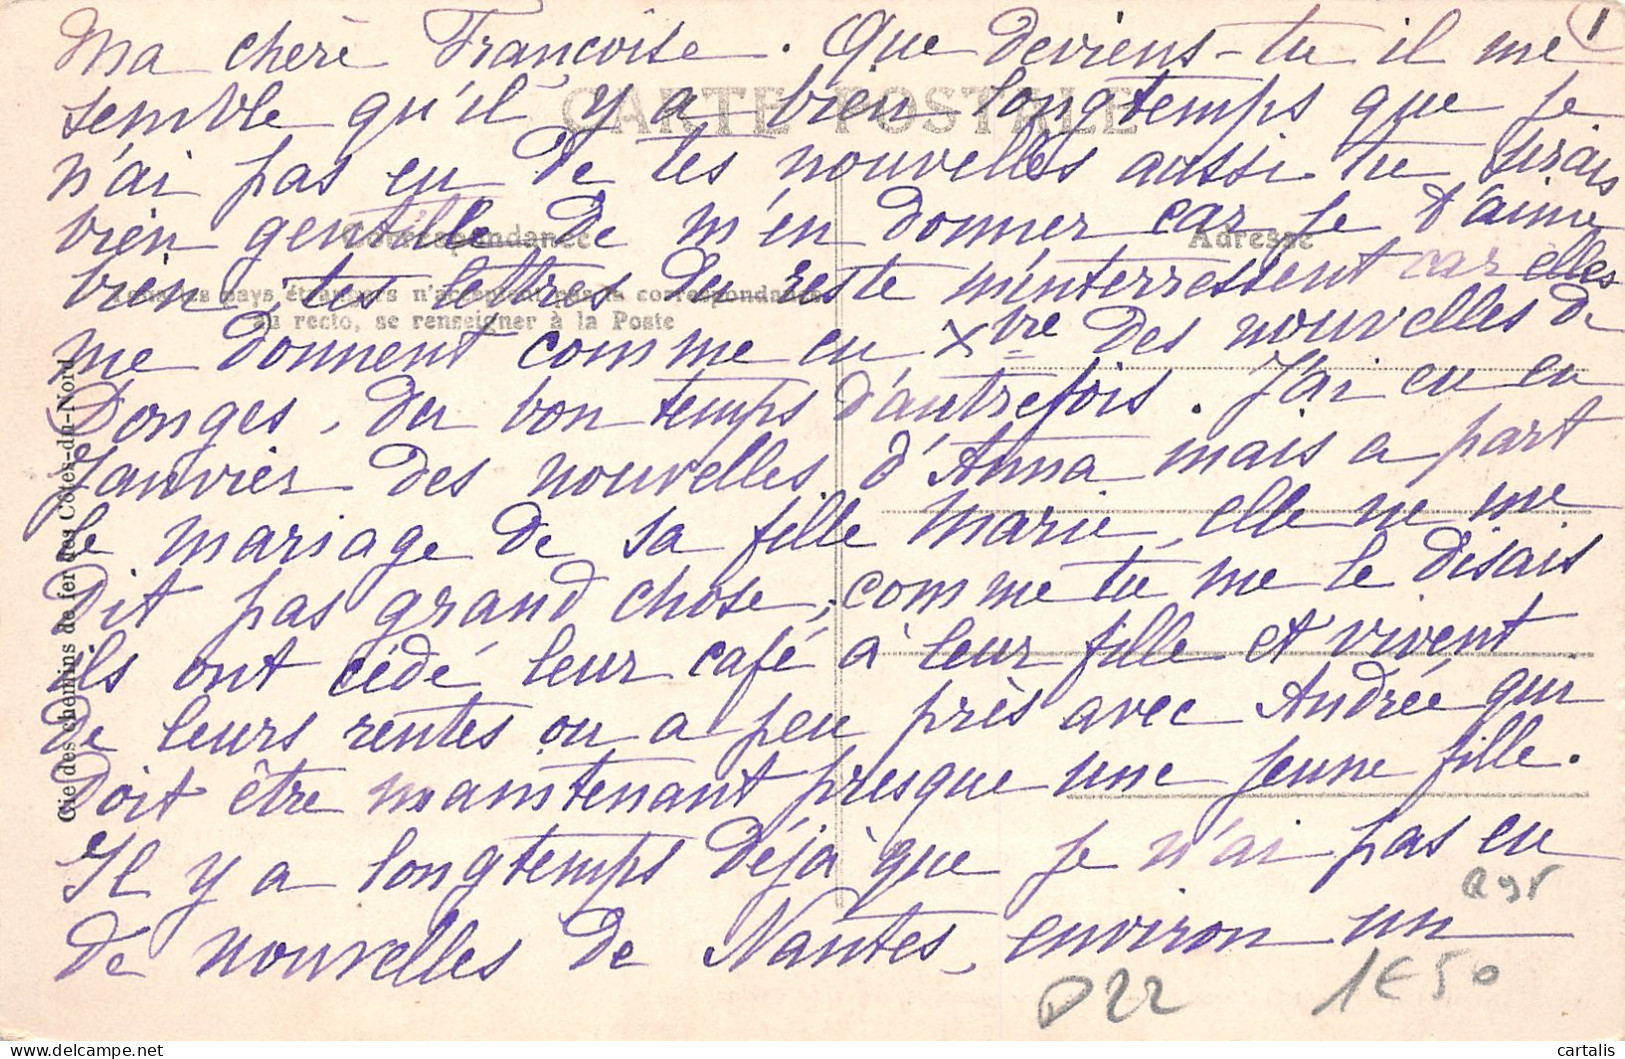 1
Ma chère Françoise. Que deviens-tu il me
semble qu'il y a bien longtemps que je
n'ai pas eu de tes nouvelles aussi tu serais
bien gentille de m'en donner car je t'aime
bien. Tes lettres du reste m'interressent car elles
me donnent comme en Xbre des nouvelles de
Donges, du bon temps d'autrefois. J'ai eu en
Janvier des nouvelles d'Anna mais a part
le mariage de sa fille Marie, elle ne me
dit pas grand chose, comme tu me le disais
ils ont cédé leur café à leur fille et vivent
de leurs rentes ou a peu près avec Andrée qui
doit être maintenant presque une jeune fille.
Il y a longtemps déjà que je n'ai pas eu
de nouvelles de Nantes, environ un
CARTE POSTALE
Correspondance
Adresse
Tous les pays étrangers n'acceptent pas la correspondance
au recto, se renseigner à la Poste
Cie des chemins de fer des Côtes-du-Nord
D22
1€50
cartalis